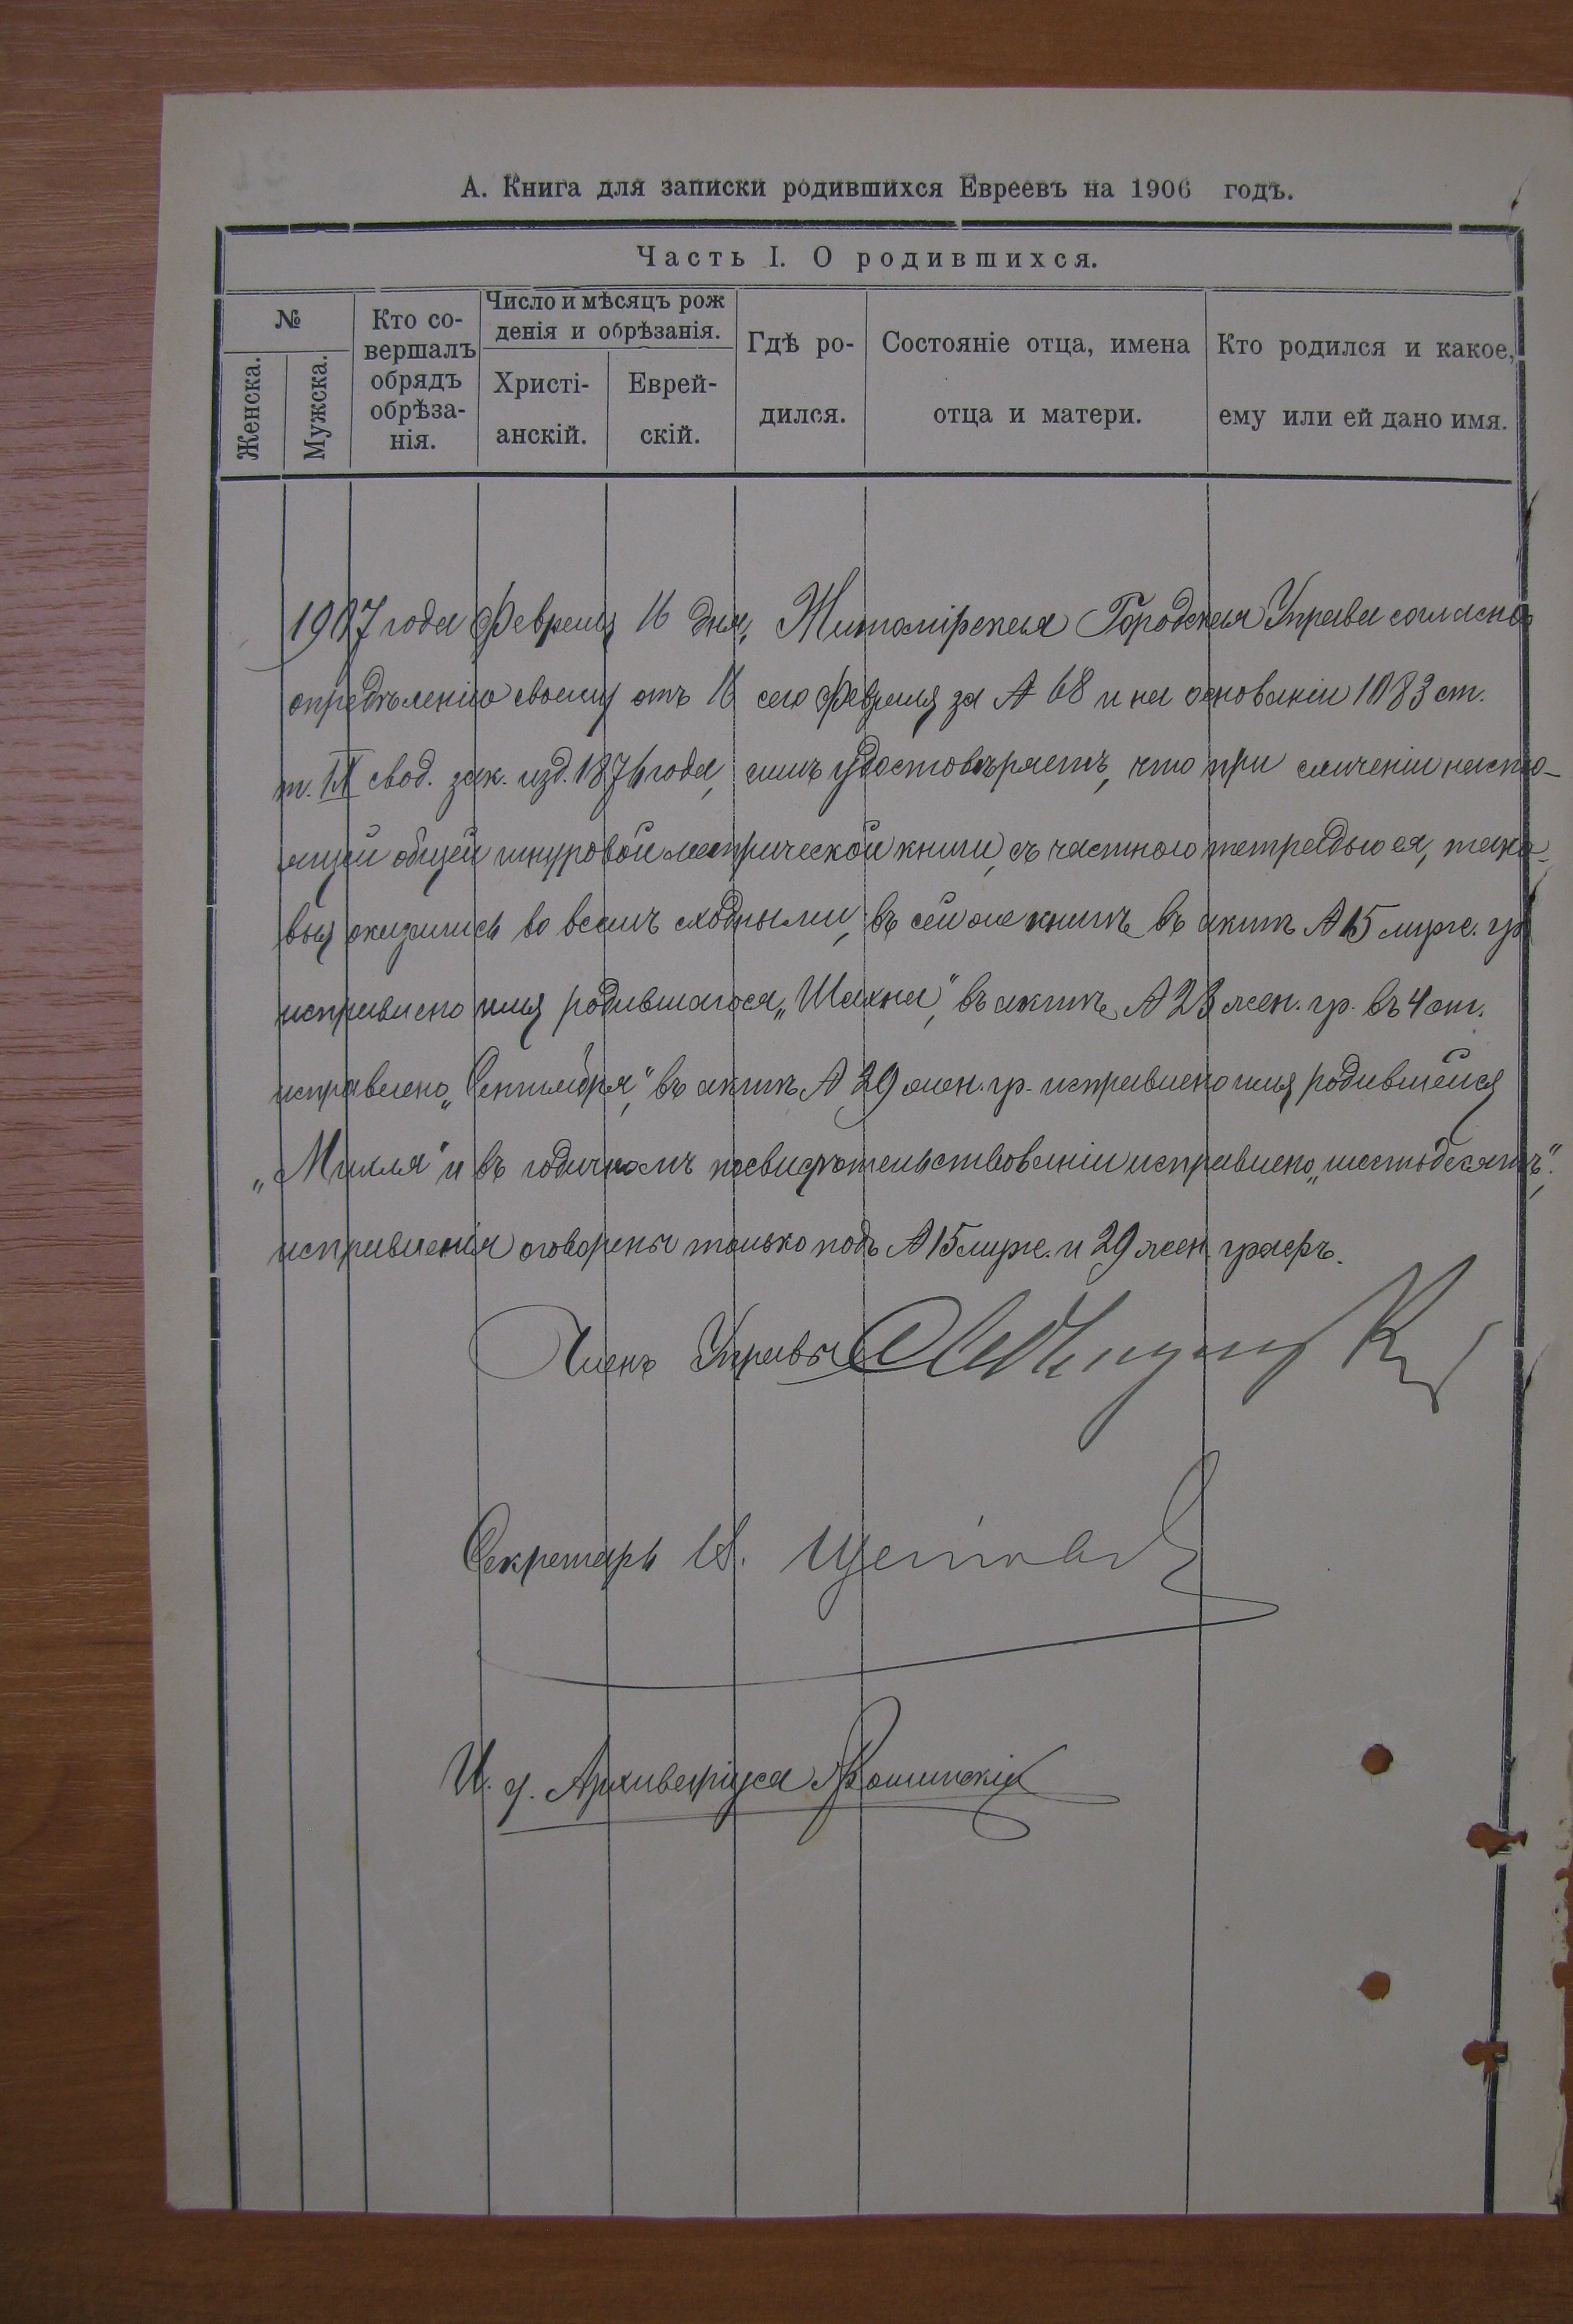 А. Книга для записки родившихся Евреевъ на 1906 годъ.
Часть I. О родившихся.
№
Женска.
Мужска.
Кто со-
вершалъ
обрядъ
обрѣза-
нія.
Число и мѣсяцъ рож
денія и обрѣзанія.
Христі-
анскій.
Еврей-
скій.
Гдѣ ро-
дился.
Состояніе отца, имена
отца и матери.
Кто родился и какое,
ему или ей дано имя.
1907 года Февраля 16 дня, Житомірская Городская Управа согласно
опредѣленію своему отъ 16 сего Февраля за № 68 и на основаніи 1083 ст.
т. IX свод. зак. изд. 1876 года, симъ удостовѣряетъ, что при сличеніи насто-
ящей общей шнуровой метрической книги, съ частною тетрадью ея, тако-
выя оказались во всемъ сходными, въ сей же книгѣ въ актѣ № 15 муже. гр.
исправлено имя родившагося „Шахна", въ актѣ № 23 жен. гр. въ 4 ст.
исправлено „Сентября", въ актѣ № 29 жен. гр. исправлено имя родившейся
„Михля" и въ годичномъ засвидѣтельствованіи исправлено „шестьдесятъ".
исправленія оговорены только подъ № 15 муже. и 29 жен. графъ.
Членъ Управы
Секретарь
И. д. Архиваріуса